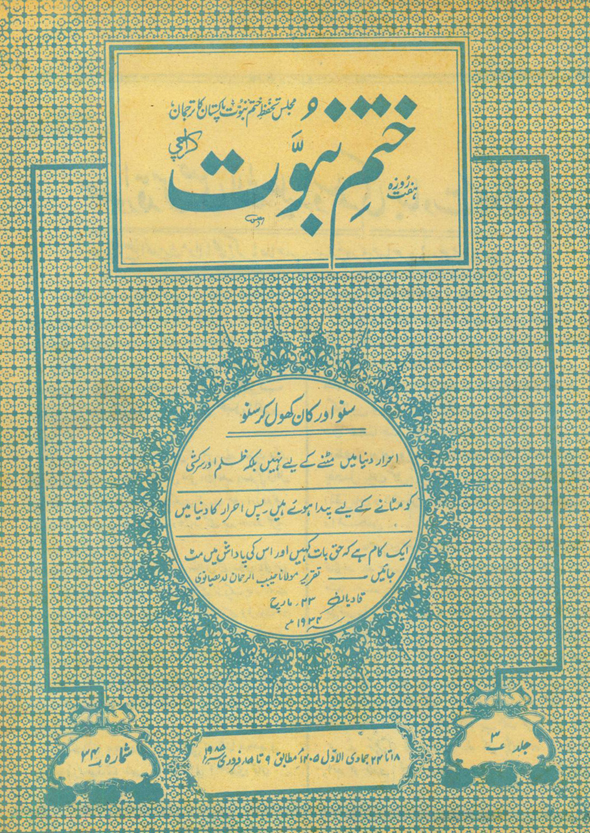 مجلس تحفظ ختم نبوت پاکستان کا ترجمان
ہفت روزہ
ختمِ نبوّت
کراچی
سنو اور کان کھول کر سنو
احرار دنیا میں مٹنے کے لیے نہیں بلکہ ظلم اور سرکشی
کو مٹانے کے لیے پیدا ہوئے ہیں پس احرار کا دنیا میں
ایک کام ہے کہ حق بات کہیں اور اس کی پاداش میں مٹ
جائیں ـــــ تقریر مولانا حبیب الرحمان لدھیانوی
قادیان ۲۳، مارچ
۱۹۳۴ء
جلد ۳
شمارہ ۳۴
۱۸ تا ۲۴ جمادی الاوّل ۱۴۰۵ھ مطابق ۹ تا ۱۵ فروری ۱۹۸۵ء